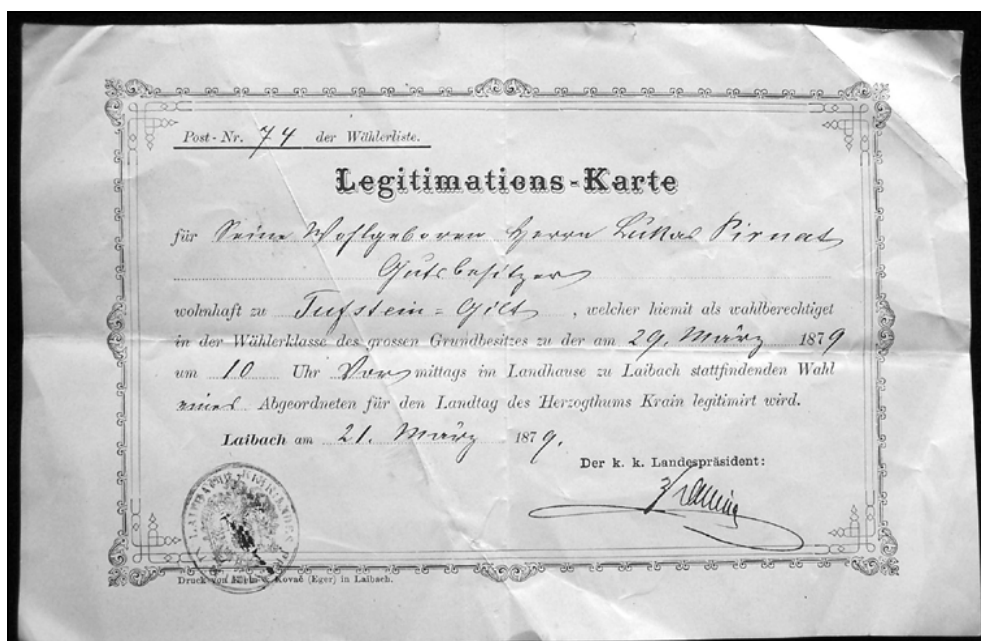 Post-Nr. 74 der Wählerliste.
Legitimations-Karte
für Seine Wohlgeboren Herrn Lukas Pirnat
Gutsbesitzer
wohnhaft zu Tufstein=Gilt, welcher hiemit als wahlberechtiget
in der Wählerklasse des grossen Grundbesitzes zu der am 29. März 1879
um 10 Uhr Vormittags im Landhause zu Laibach stattfindenden Wahl
eines Abgeordneten für den Landtag des Herzogthums Krain legitimirt wird.
Laibach am 21. März 1879.
Der k. k. Landespräsident:
Druck von & Kovač (Eger) in Laibach.